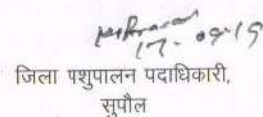 17-09-19
जिला पशुपालन पदाधिकारी,
सुपौल